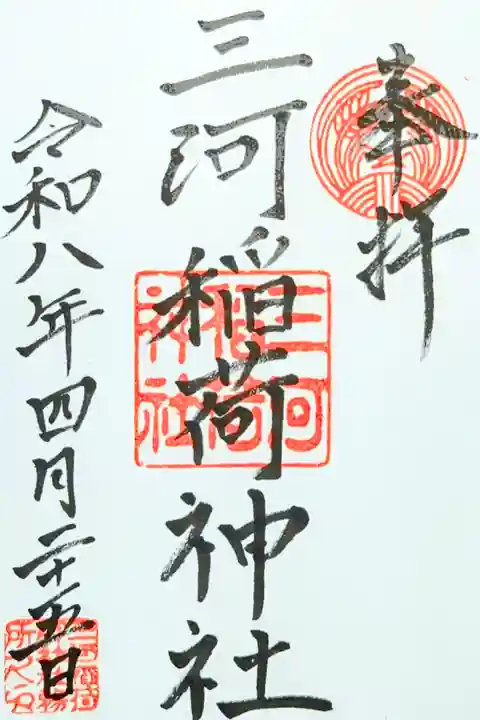 奉拝
三河稲荷神社
三河稲荷神社
令和八年四月二十五日